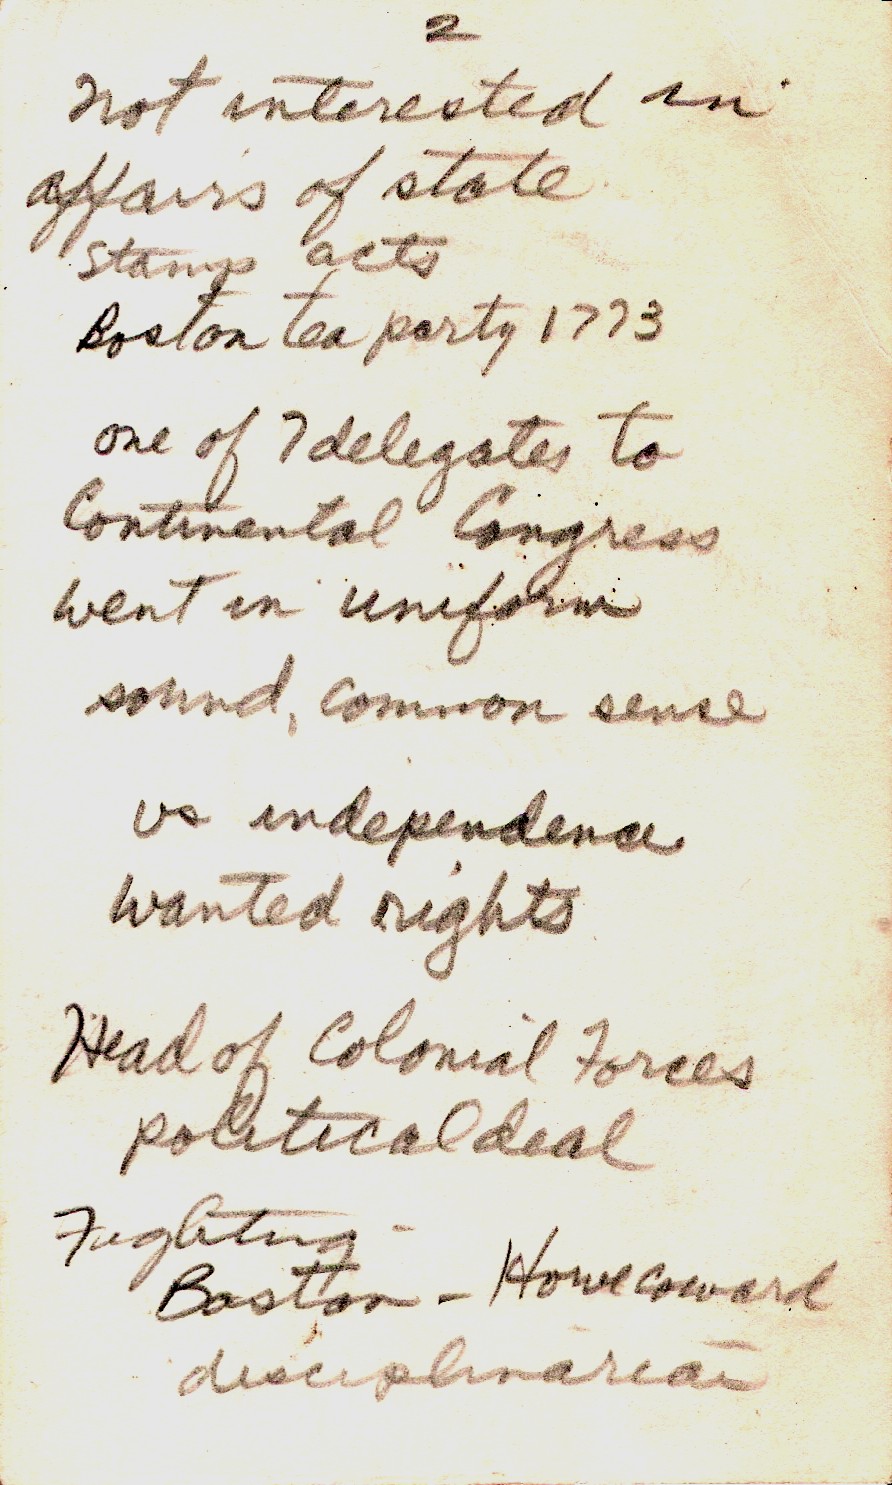 2
not interested in
affairs of state
Stamp acts
Boston tea party 1773
one of 7 delegates to
Continental Congress
went in uniform
sound, common sense
vs independence
wanted rights
Head of Colonial Forces
political deal
Fighting -
Boston - Howe coward
disciplinarian